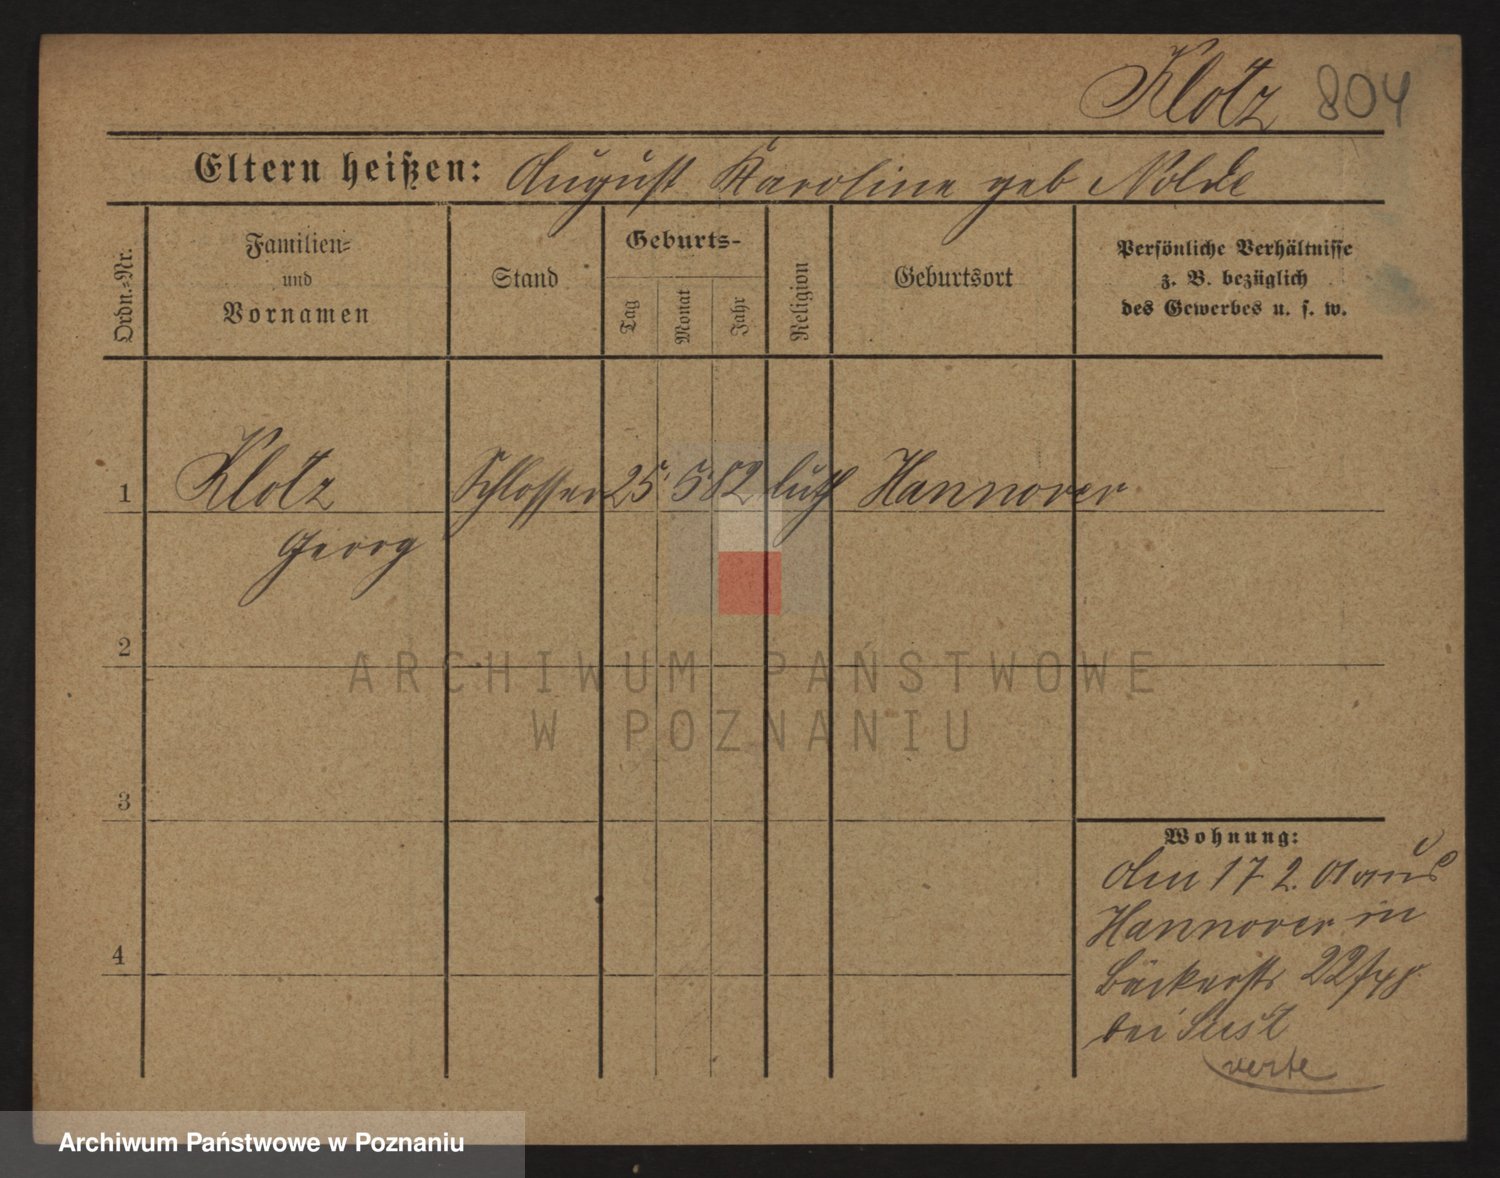 Klotz 804
Eltern heißen: August Karoline geb Nolde
Ordn.-Nr.
Familien-
und
Vornamen
Stand
Geburts-
Tag
Monat
Jahr
Religion
Geburtsort
Persönliche Verhältnisse
z. B. bezüglich
des Gewerbes u. s. w.
1 Klotz Schlosser 25 5 82 luth Hannover
Georg
2
ARCHIWUM PAŃSTWOWE
W POZNANIU
3
Wohnung:
den 17 2. 01 aus
Hannover in
4
Bäckerstr 22
bei
verte
Archiwum Państwowe w Poznaniu